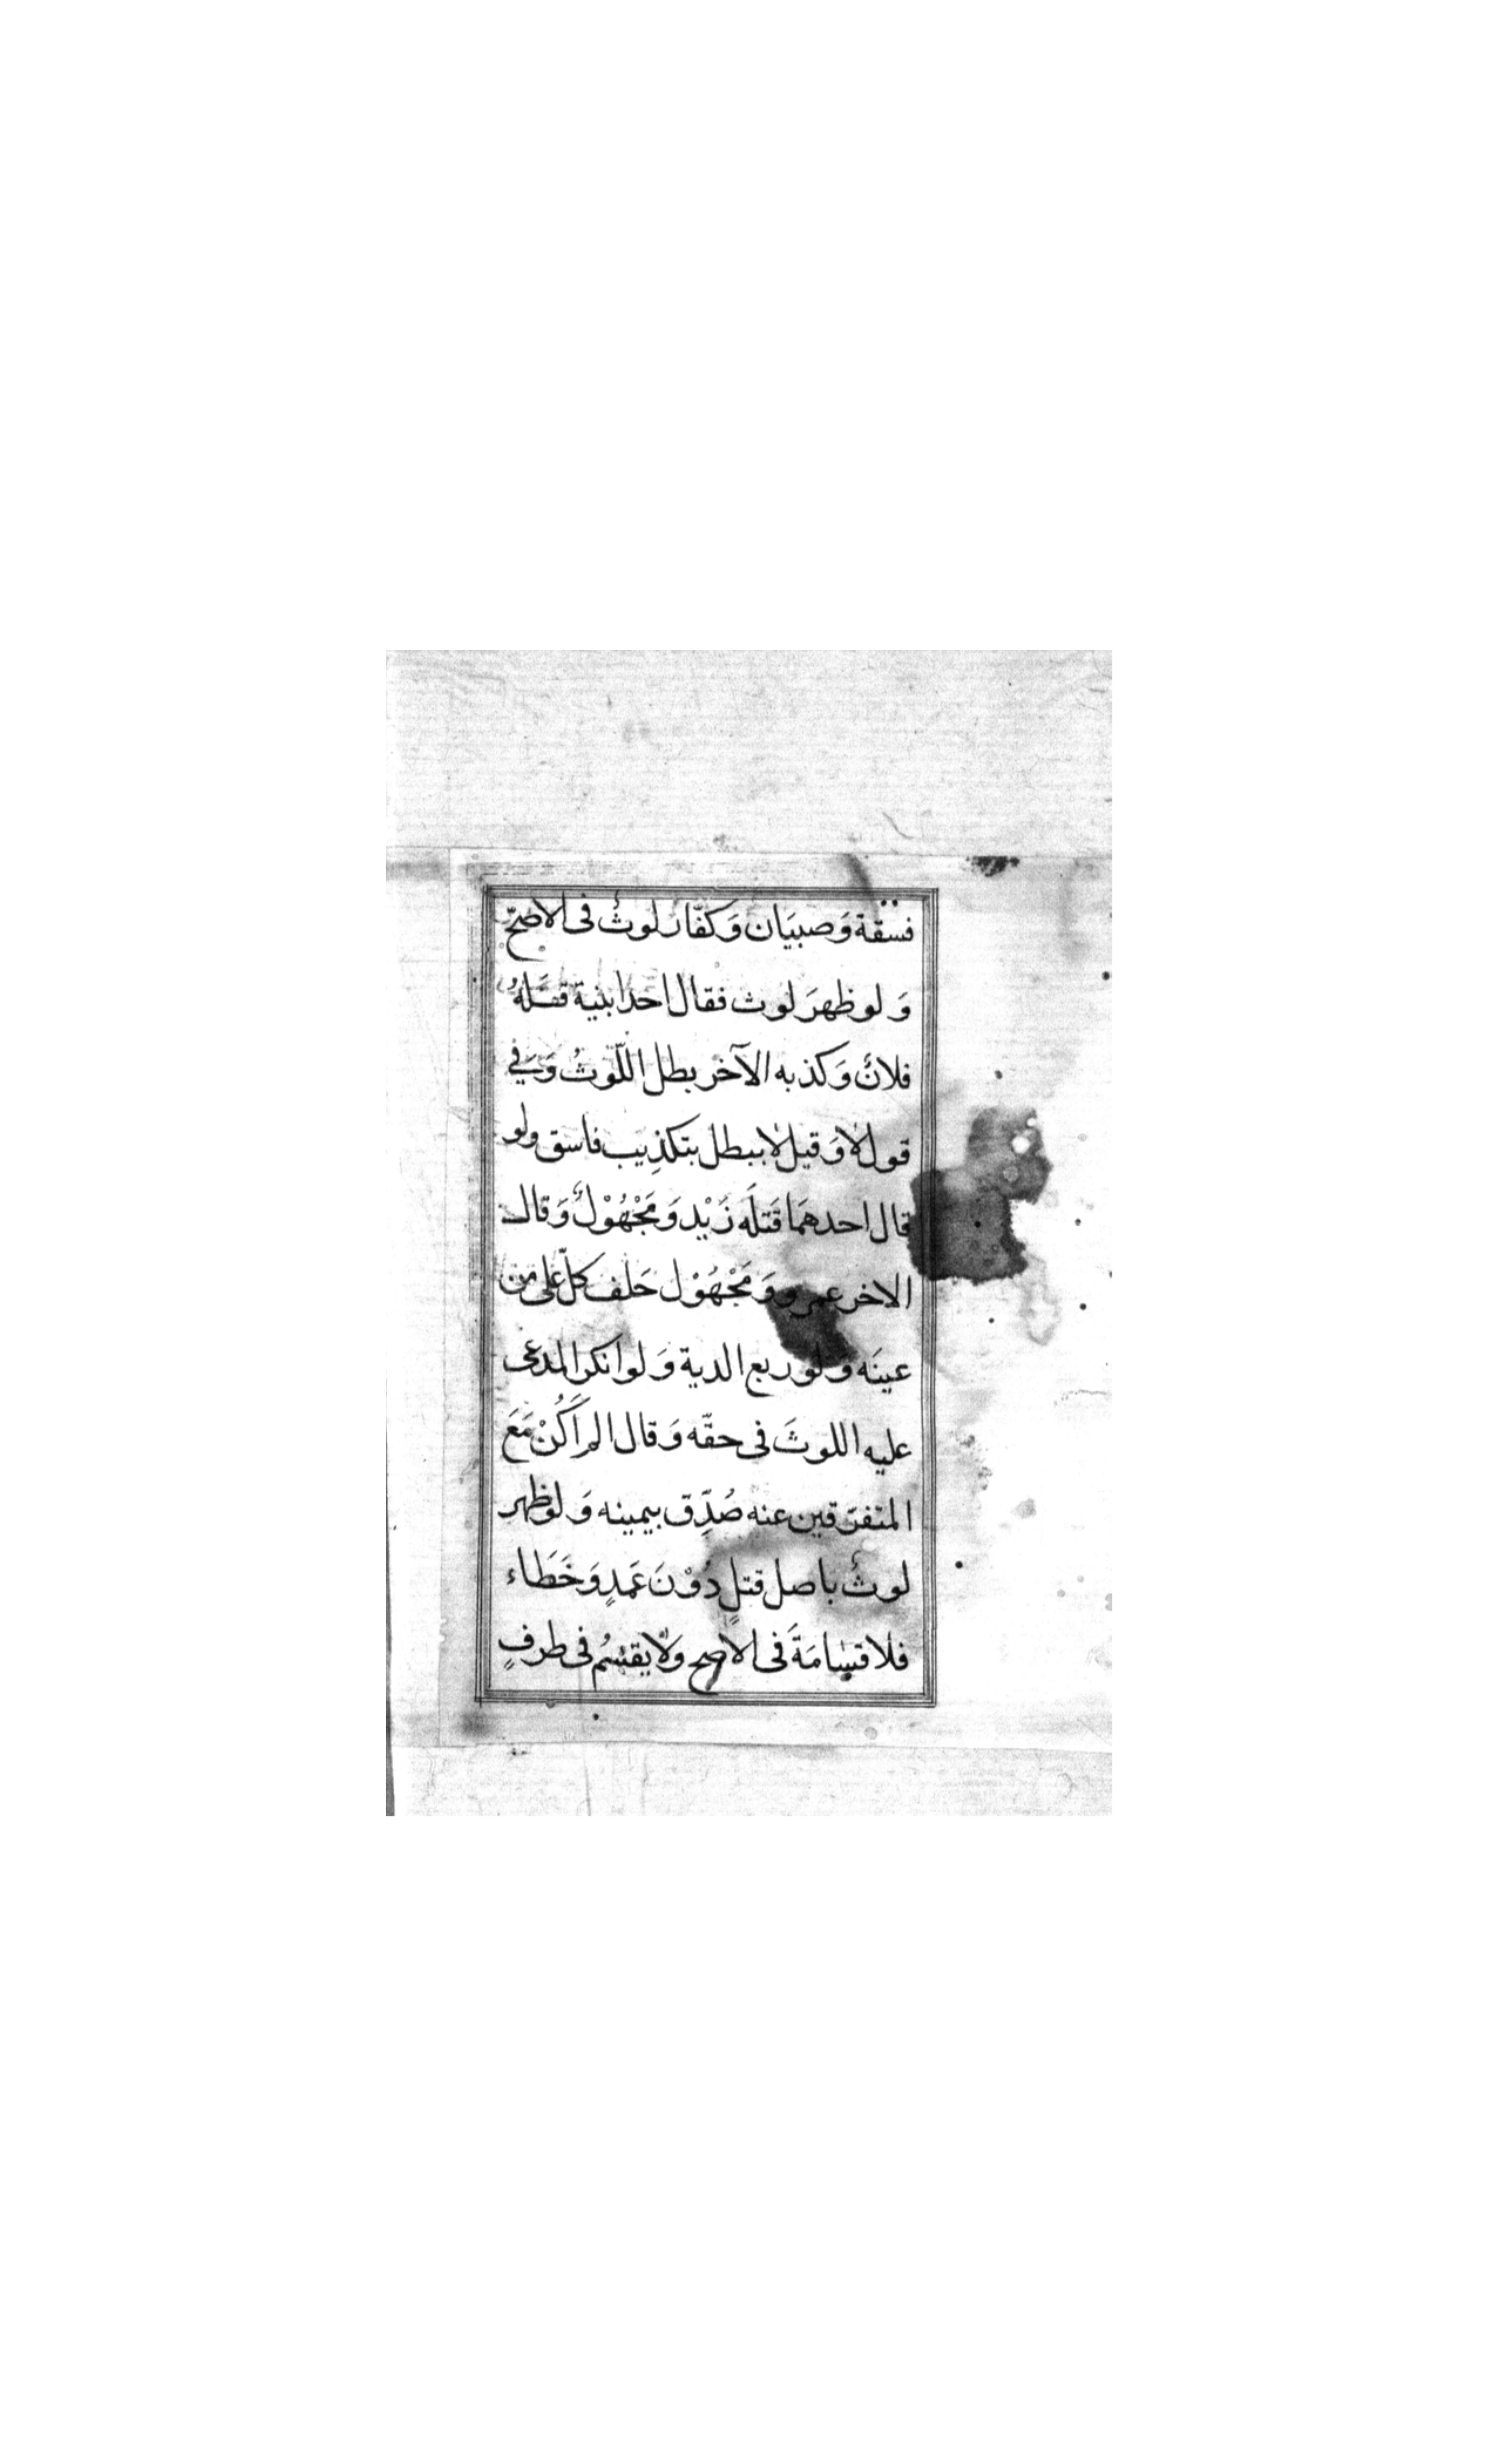 فسقة وَصبيَان وَكفّار لوثٌ فى الاصحّ
وَلو ظهرَ لوث فقال احد ابنية قتَلَهُ
فلانٌ وَكذبه الآخر بطل اللّوثُ وَفي
قول لا وَقيل لا يبطل بتكذِيب فاسق ولو
قال احدهمَا قَتلَه زَيْد وَمَجْهُوْلٌ وَقال
الاخر عمرو وَمَجْهُوْل حَلف كلّ على من
عينَه وَلو ربع الدية وَلو انكر المدعى
عليه اللوثَ فى حقّه وَقال لم اَكُنْ مَعَ
المتفرّقين عنه صُدِّق بيمينه وَلو ظهر
لوثٌ باصل قتلٍ دُوْنَ عَمدٍ وَخَطَاء
فلا قسَامَةَ فى الاصح وَلا يقسُم فى طرفٍ